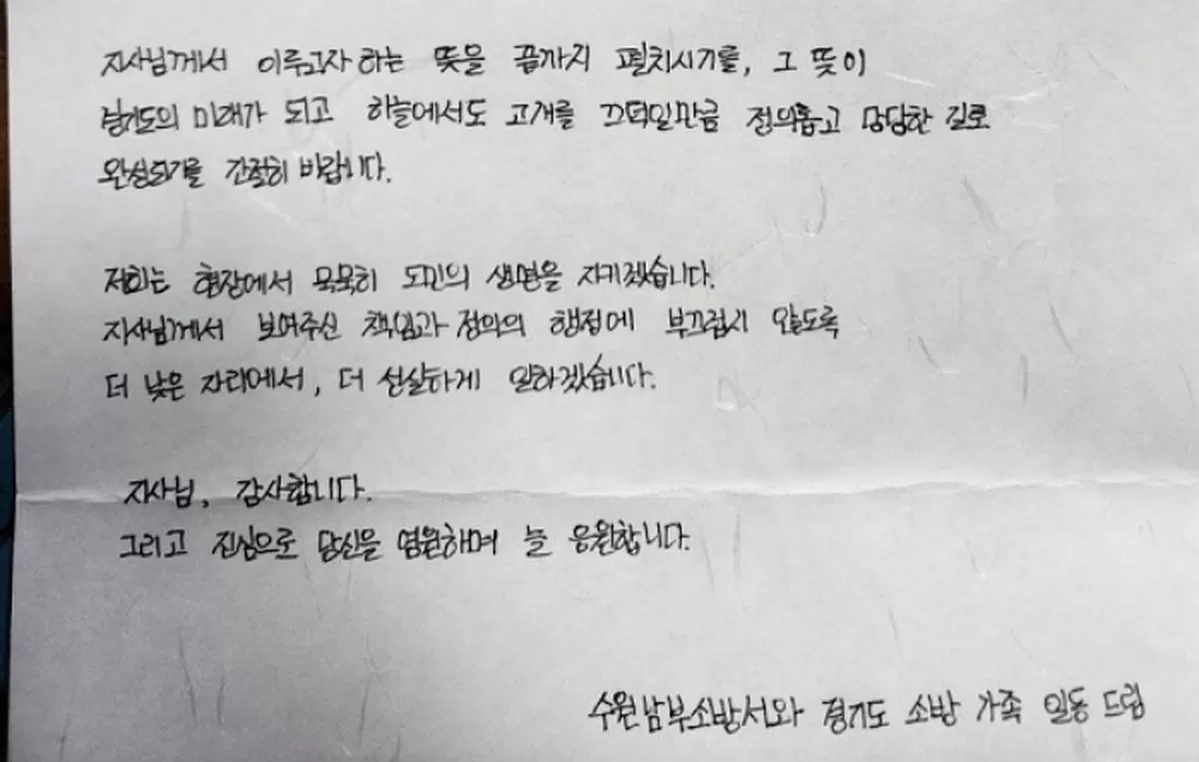 지사님께서 이루고자 하는 뜻을 끝까지 펼치시기를, 그 뜻이
경기도의 미래가 되고 하늘에서도 고개를 끄덕일만큼 정의롭고 당당한 길로
완성되기를 간절히 바랍니다.
저희는 현장에서 묵묵히 도민의 생명을 지키겠습니다.
지사님께서 보여주신 책임과 정의의 행정에 부끄럽지 않도록
더 낮은 자리에서, 더 성실하게 일하겠습니다.
지사님, 감사합니다.
그리고 진심으로 당신을 염원하며 늘 응원합니다.
수원남부소방서와 경기도 소방 가족 일동 드림